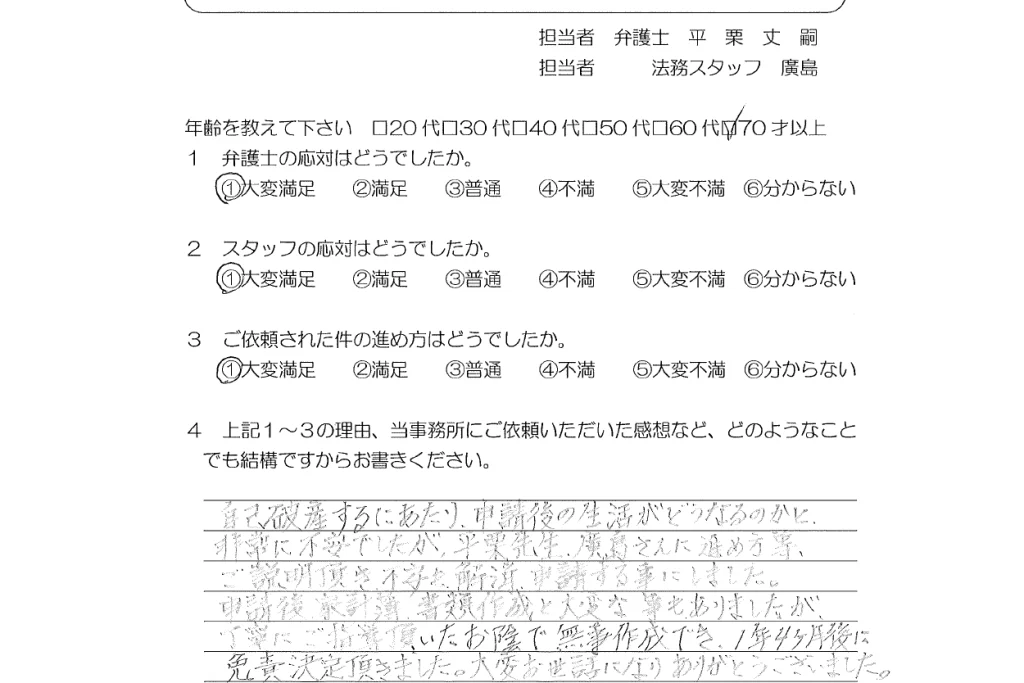 担当者　弁護士　平　栗　丈　嗣
担当者　　　法務スタッフ　廣島
年齢を教えて下さい　□20代□30代□40代□50代□60代☑70才以上
１　弁護士の応対はどうでしたか。
①大変満足　②満足　③普通　④不満　⑤大変不満　⑥分からない
２　スタッフの応対はどうでしたか。
①大変満足　②満足　③普通　④不満　⑤大変不満　⑥分からない
３　ご依頼された件の進め方はどうでしたか。
①大変満足　②満足　③普通　④不満　⑤大変不満　⑥分からない
４　上記１～３の理由、当事務所にご依頼いただいた感想など、どのようなこと
でも結構ですからお書きください。
自己破産するにあたり、申請後の生活がどうなるのかと、
非常に不安でしたが、平栗先生、廣島さんに進め方等、
ご説明頂き不安も解消、申請する事にしました。
申請後、家計簿、書類作成と大変な事もありましたが、
丁寧にご指導頂いたお陰で無事作成でき、1年4ヶ月後に
免責決定頂きました。大変お世話になりありがとうございました。